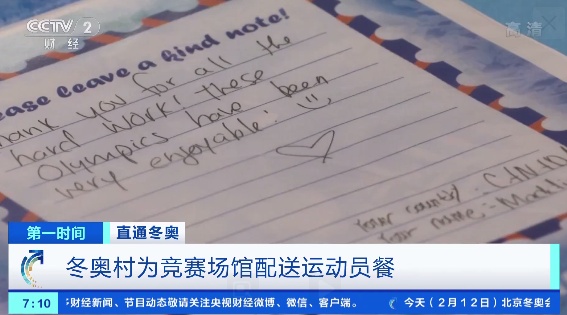 CCTV 2
财经
高清
ease leave a kind note!
hank you for all the
hard work! these
Olympics have been
very enjoyable! :)
Your country:
Your name:
第一时间 直通冬奥
冬奥村为竞赛场馆配送运动员餐
7:10 财经新闻、节目动态敬请关注央视财经微博、微信、客户端。 今天（2月12日）北京冬奥会